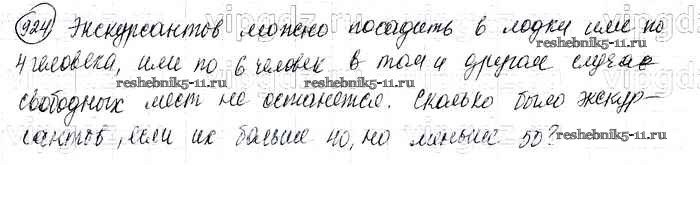 924 Экскурсантов можно посадить в лодки или по
4 человека, или по 6 человек в том и другом случае
свободных мест не останется. Сколько было экскур-
сантов, если их больше 40, но меньше 50?
reshebnik5-11.ru
reshebnik5-11.ru
reshebnik5-11.ru
reshebnik5-11.ru